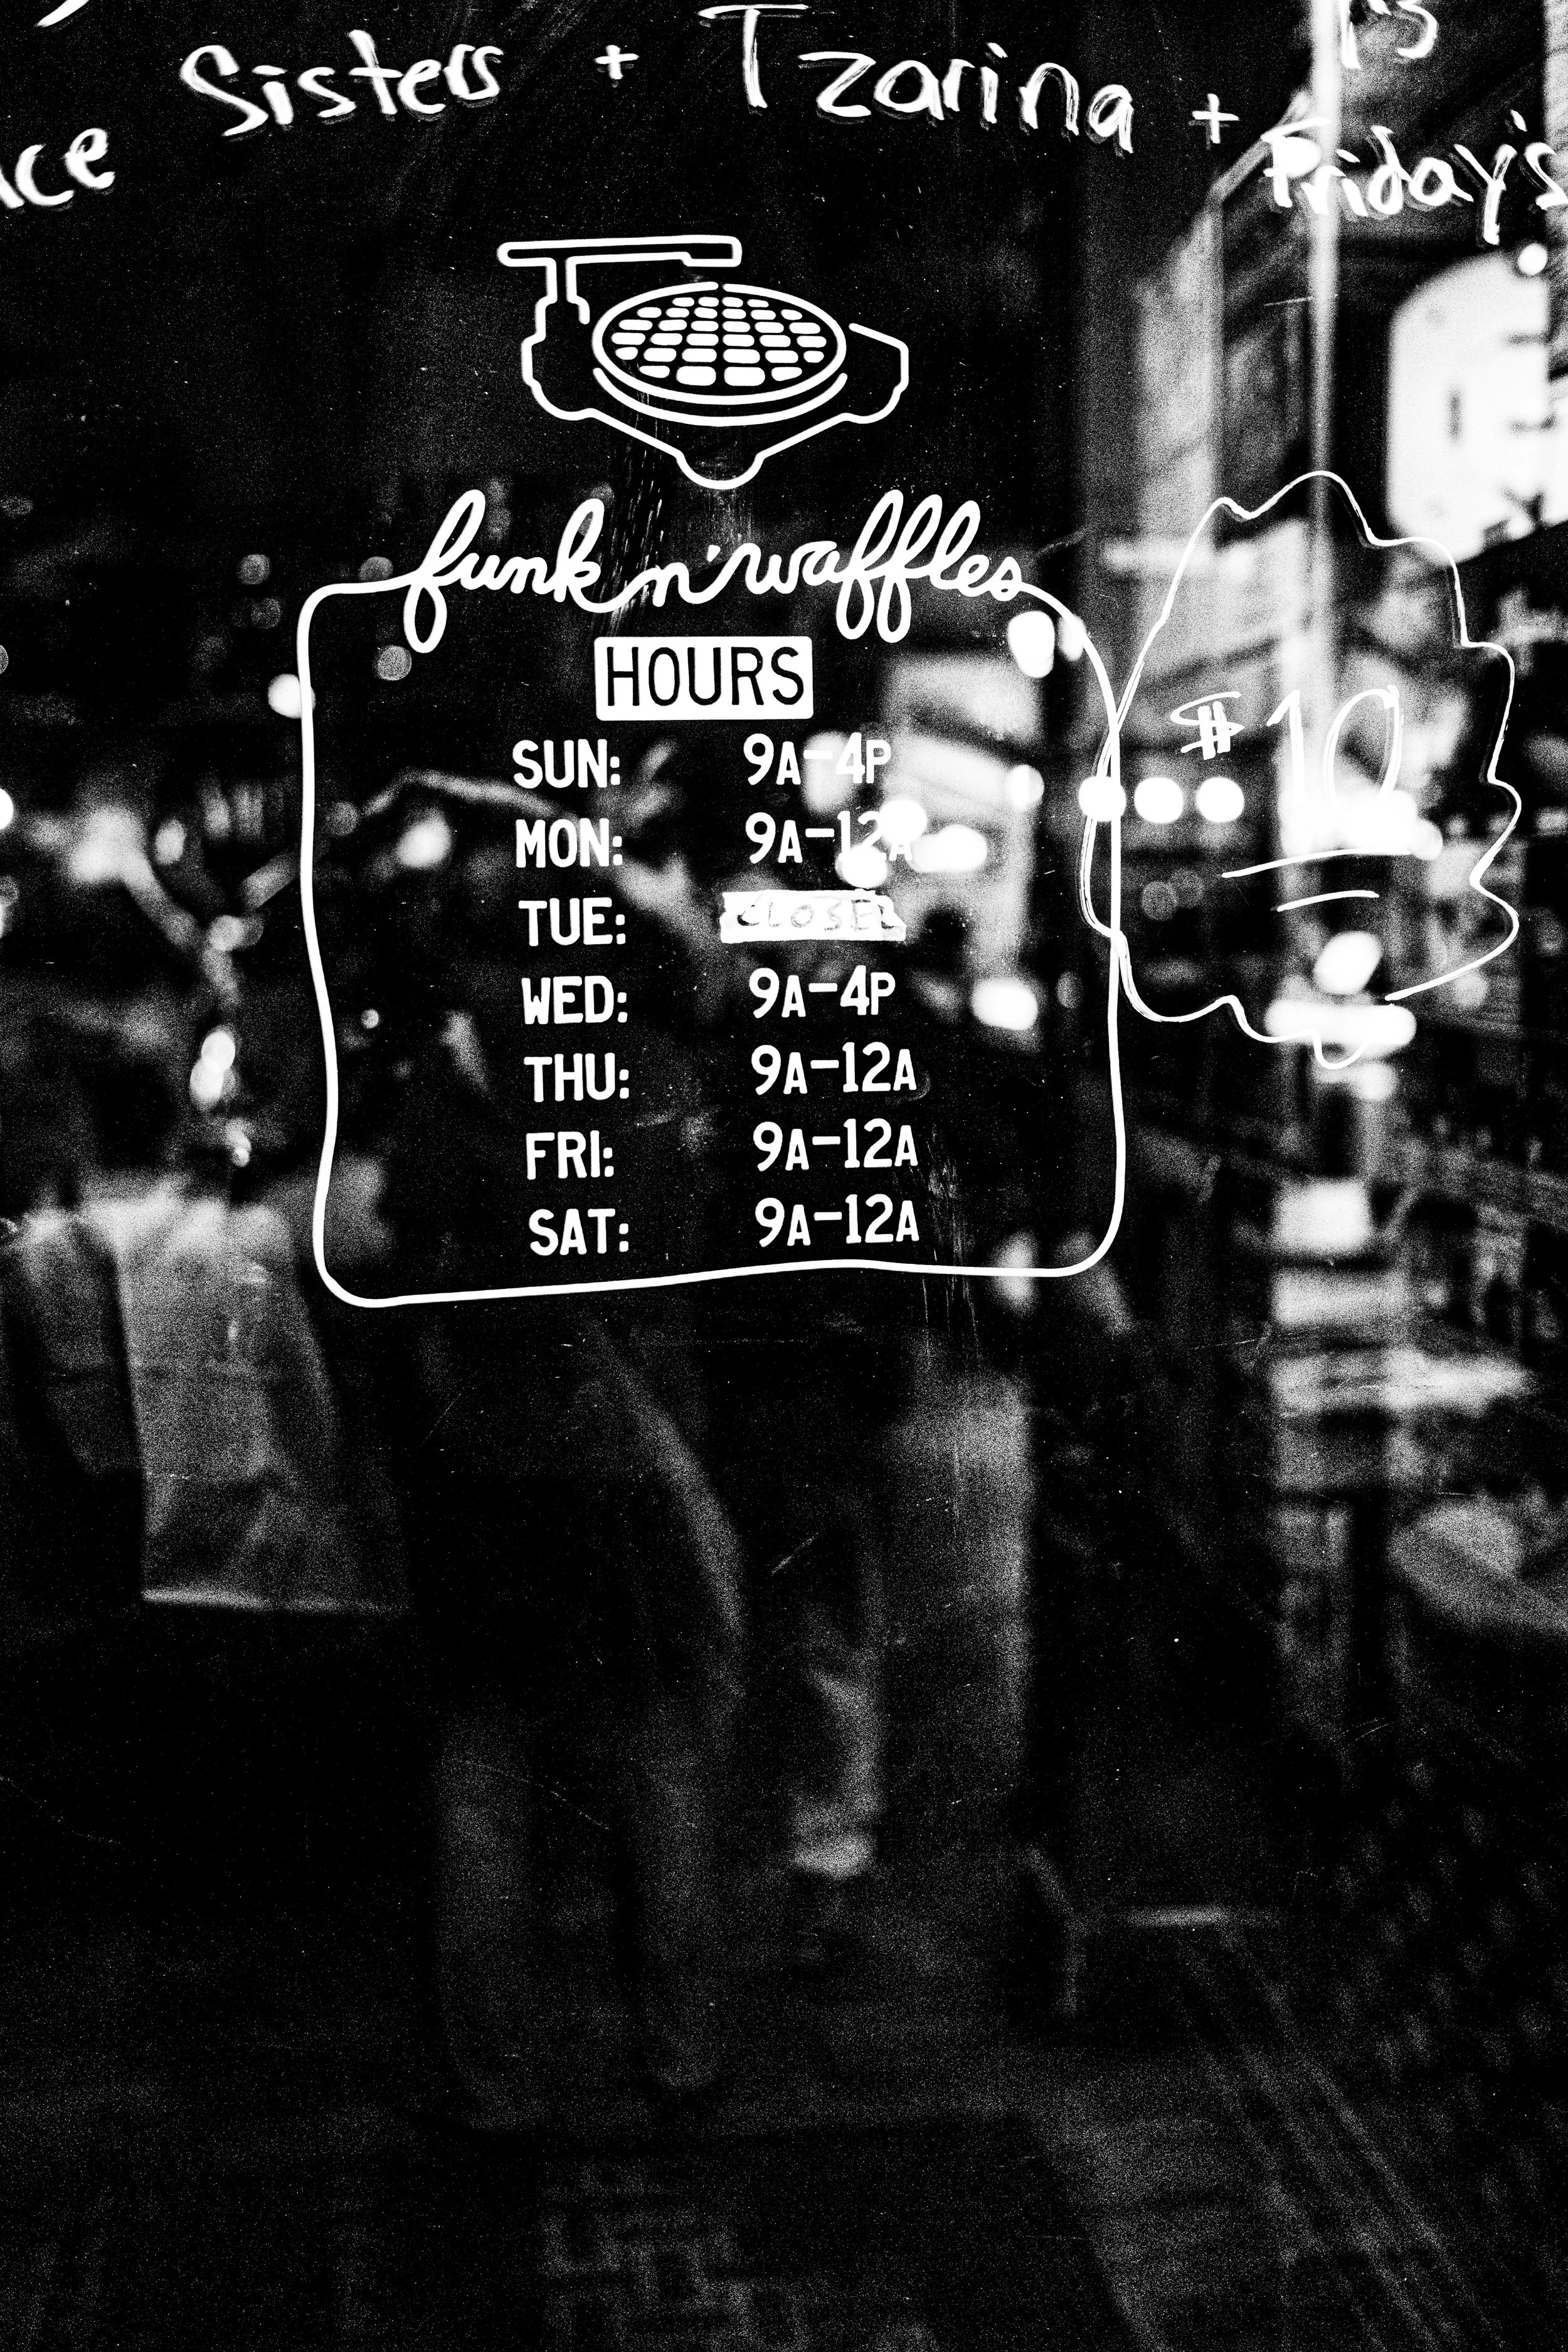 Sisters + Tzarina + Friday's
funk n' waffles
HOURS
SUN: 9A-4P
MON: 9A-12A
TUE: CLOSED
WED: 9A-4P
THU: 9A-12A
FRI: 9A-12A
SAT: 9A-12A
$10